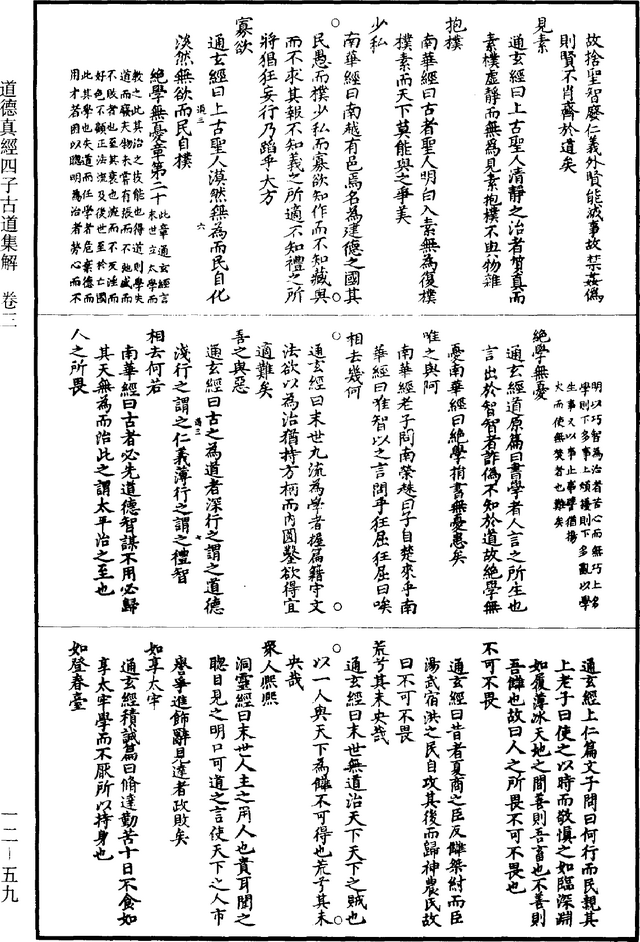 道德真經四子古道集解　卷三
一二—五九
故捨聖智廢仁義外賢能滅事故禁姦偽
則賢不肖齊於道矣
見素
通玄經曰上古聖人清靜之治者質真而
素樸虛靜而無為見素抱樸不與物雜
抱樸
南華經曰古者聖人明白入素無為復樸
樸素而天下莫能與之爭美
少私
南華經曰南越有邑焉名為建德之國其
民愚而樸少私而寡欲知作而不知藏與
而不求其報不知義之所適不知禮之所
將猖狂妄行乃蹈乎大方
寡欲
通玄經曰上古聖人漠然無為而民自化
道三　六
淡然無欲而民自樸
絕學無憂章第二十
此章通玄經言
末世立太學而
教之此其治之技能也得道則學失
道而廢夫物未常有張而不弛盛而
不敗者也至其衰也流而不反淫而
好色不顧正法流及後世至於亡國
此其學也失道而任學者危棄德而
用才若困以聰明為治者勞心而不
明以巧智為治者苦心而無巧上名
學則下多事上煩擾則下多亂以學
生事又以事止事譬猶揚
火而使無焚者也難矣
絕學無憂
通玄經道原篇曰書學者人言之所生也
言出於智智者詐偽不知於道故絕學無
憂南華經曰絕學捐書無憂患矣
唯之與阿
南華經老子問南榮趎曰子自楚來乎南
華經曰唯智以之言問乎狂屈狂屈曰唉
相去幾何
通玄經曰末世九流為學者握篇籍守文
法欲以為治猶持方柄而內圓鑿欲得宜
適難矣
吾之與惡
通玄經曰古之為道者深行之謂之道德
淺行之謂之仁義薄行之謂之禮智
道三　七
相去何若
南華經曰古者必先道德智謀不用必歸
其天無為而治此之謂太平治之至也
人之所畏
通玄經上仁篇文子問曰何行而民親其
上老子曰使之以時而敬慎之如臨深淵
如履薄冰天地之間善則吾畜也不善則
吾讎也故曰人之所畏不可不畏也
不可不畏
通玄經曰昔者夏商之臣反讎桀紂而臣
湯武宿洪之民自攻其後而歸神農民故
曰不可不畏
荒兮其未央哉
通玄經曰末世無道治天下天下之賊也
以一人與天下為讎不可得也荒兮其未
央哉
衆人熙熙
洞靈經曰末世人主之用人也貴耳聞之
聰目見之明口可道之言使天下之人市
譽舉進飾辭見達者政敗矣
如享太牢
通玄經積誠篇曰脩達勤苦十日不食如
享太牢學而不厭所以持身也
如登春臺